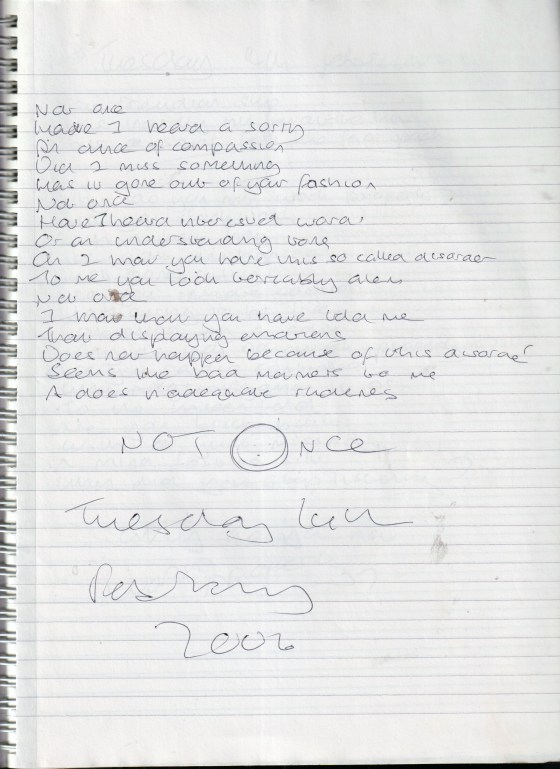 Not once
Have I heard a sorry
An ounce of compassion
Did I miss something
Has it gone out of your fashion
Not once
Have I heard interested words
Or an understanding tone
Oh I know you have this so called disorder
To me you look terribly alone
Not once
I know you have told me
That displaying emotions
Does not happen because of this disorder
Seems like bad manners to me
A does
NOT ONCE
Tuesday
2006